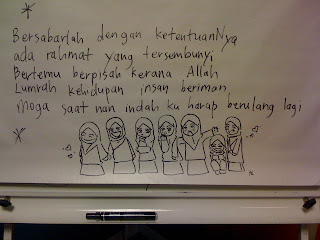 Bersabarlah dengan ketentuanNya
ada rahmat yang tersembunyi
Bertemu berpisah kerana Allah
Lumrah kehidupan insan beriman
Moga saat nan indah ku harap berulang lagi